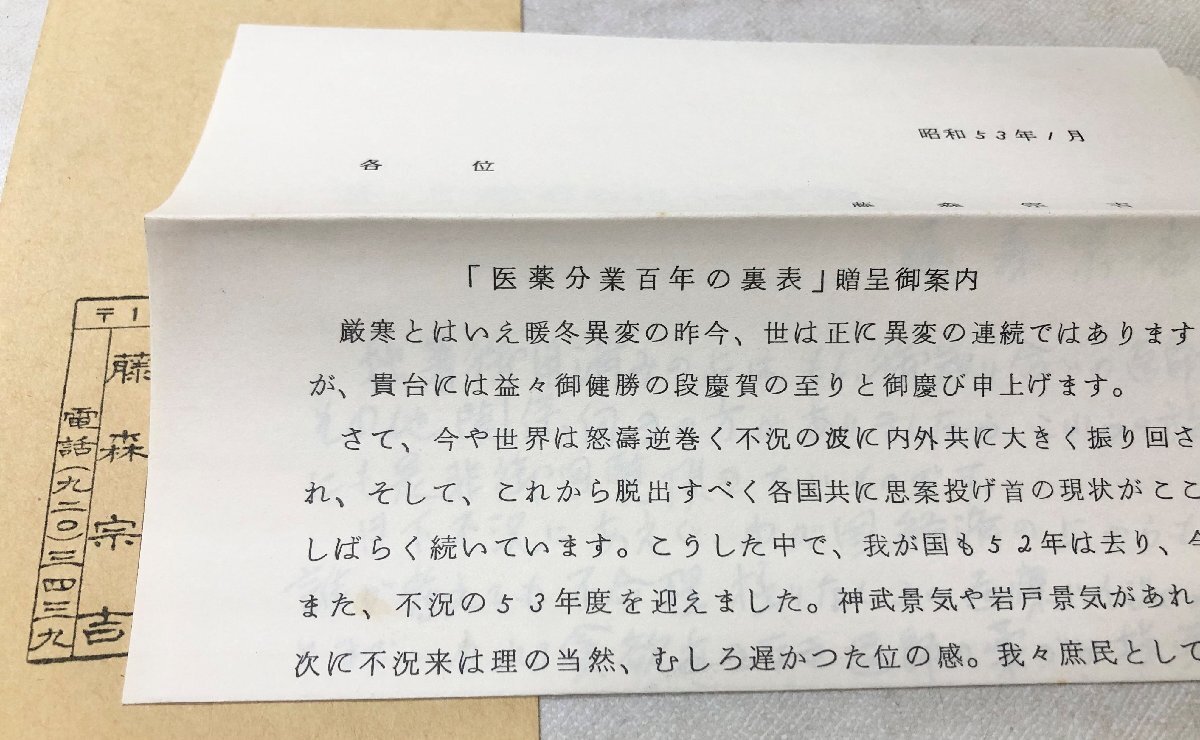 昭和53年1月
各位
「医薬分業百年の裏表」贈呈御案内
厳寒とはいえ暖冬異変の昨今、世は正に異変の連続ではあります
が、貴台には益々御健勝の段慶賀の至りと御慶び申上げます。
さて、今や世界は怒濤逆巻く不況の波に内外共に大きく振り回さ
れ、そして、これから脱出すべく各国共に思案投げ首の現状がここ
しばらく続いています。こうした中で、我が国も52年は去り、今
また、不況の53年度を迎えました。神武景気や岩戸景気があれ
次に不況来は理の当然、むしろ遅かつた位の感。我々庶民として
〒1
藤森宗吉
電話(九二〇)三四三九